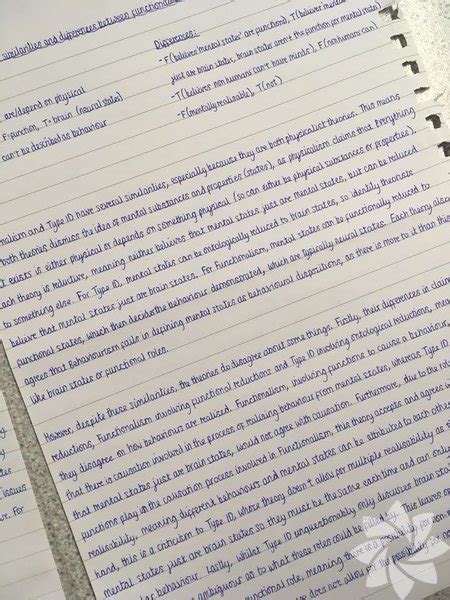 similarities and differences between functionalism
Differences:
- F (believes mental states are functions), T (believes mental
just are brain states, brain states aren't the function for mental states)
- T (believes non humans can't have minds), F (nonhumans can)
- F (mentally realisable), T (not)
are/depend on physical
F = function, T = brain (neural states)
can't be described as behaviour
nalism and Type ID have several similarities, especially because they are both physicalist theories. This means
both theories dismiss the idea of mental substances and properties (states), as physicalism claims that everything
exists is either physical or depends on something physical (so can either be physical substances or properties).
Each theory is reductive, meaning neither believes that mental states just are mental states, but can be reduced
to something else. For Type ID, mental states can be ontologically reduced to brain states, so identity theorists
believe that mental states just are brain states. For Functionalism, mental states can be functionally reduced to
functional states, which then decides the behaviour demonstrated, which are typically neural states. Each theory also
agrees that Behaviourism fails in defining mental states as behavioural dispositions, as there is more to it than this
like brain states or functional roles.
However, despite these similarities, the theories do disagree about some things. Firstly, their differences in claim
reductions, Functionalism involving functional reductions and Type ID involving ontological reductions, mean
they disagree on how behaviours are realised. Functionalism, involving functions to cause a behaviour,
that there is causation involved in the process of realising behaviour from mental states, whereas Type ID
that mental states just are brain states, would not agree with causation. Furthermore, due to the rol
function play in the causation process involved in Functionalism, this theory accepts and agrees w
realisability, meaning different behaviours and mental states can be attributed to each other
hand, this is a criticism to Type ID, whose theory doesn't allow for multiple realisability as si
mental states just are brain states so they must be the same each time and can only
lar behaviour. Lastly, whilst Type ID unquestionably only discusses brain state
ambiguous as to what these roles could be filled by. This leaves op
functional role, meaning there is a possibility for non-
does not allow for the possibility for non
issues
For